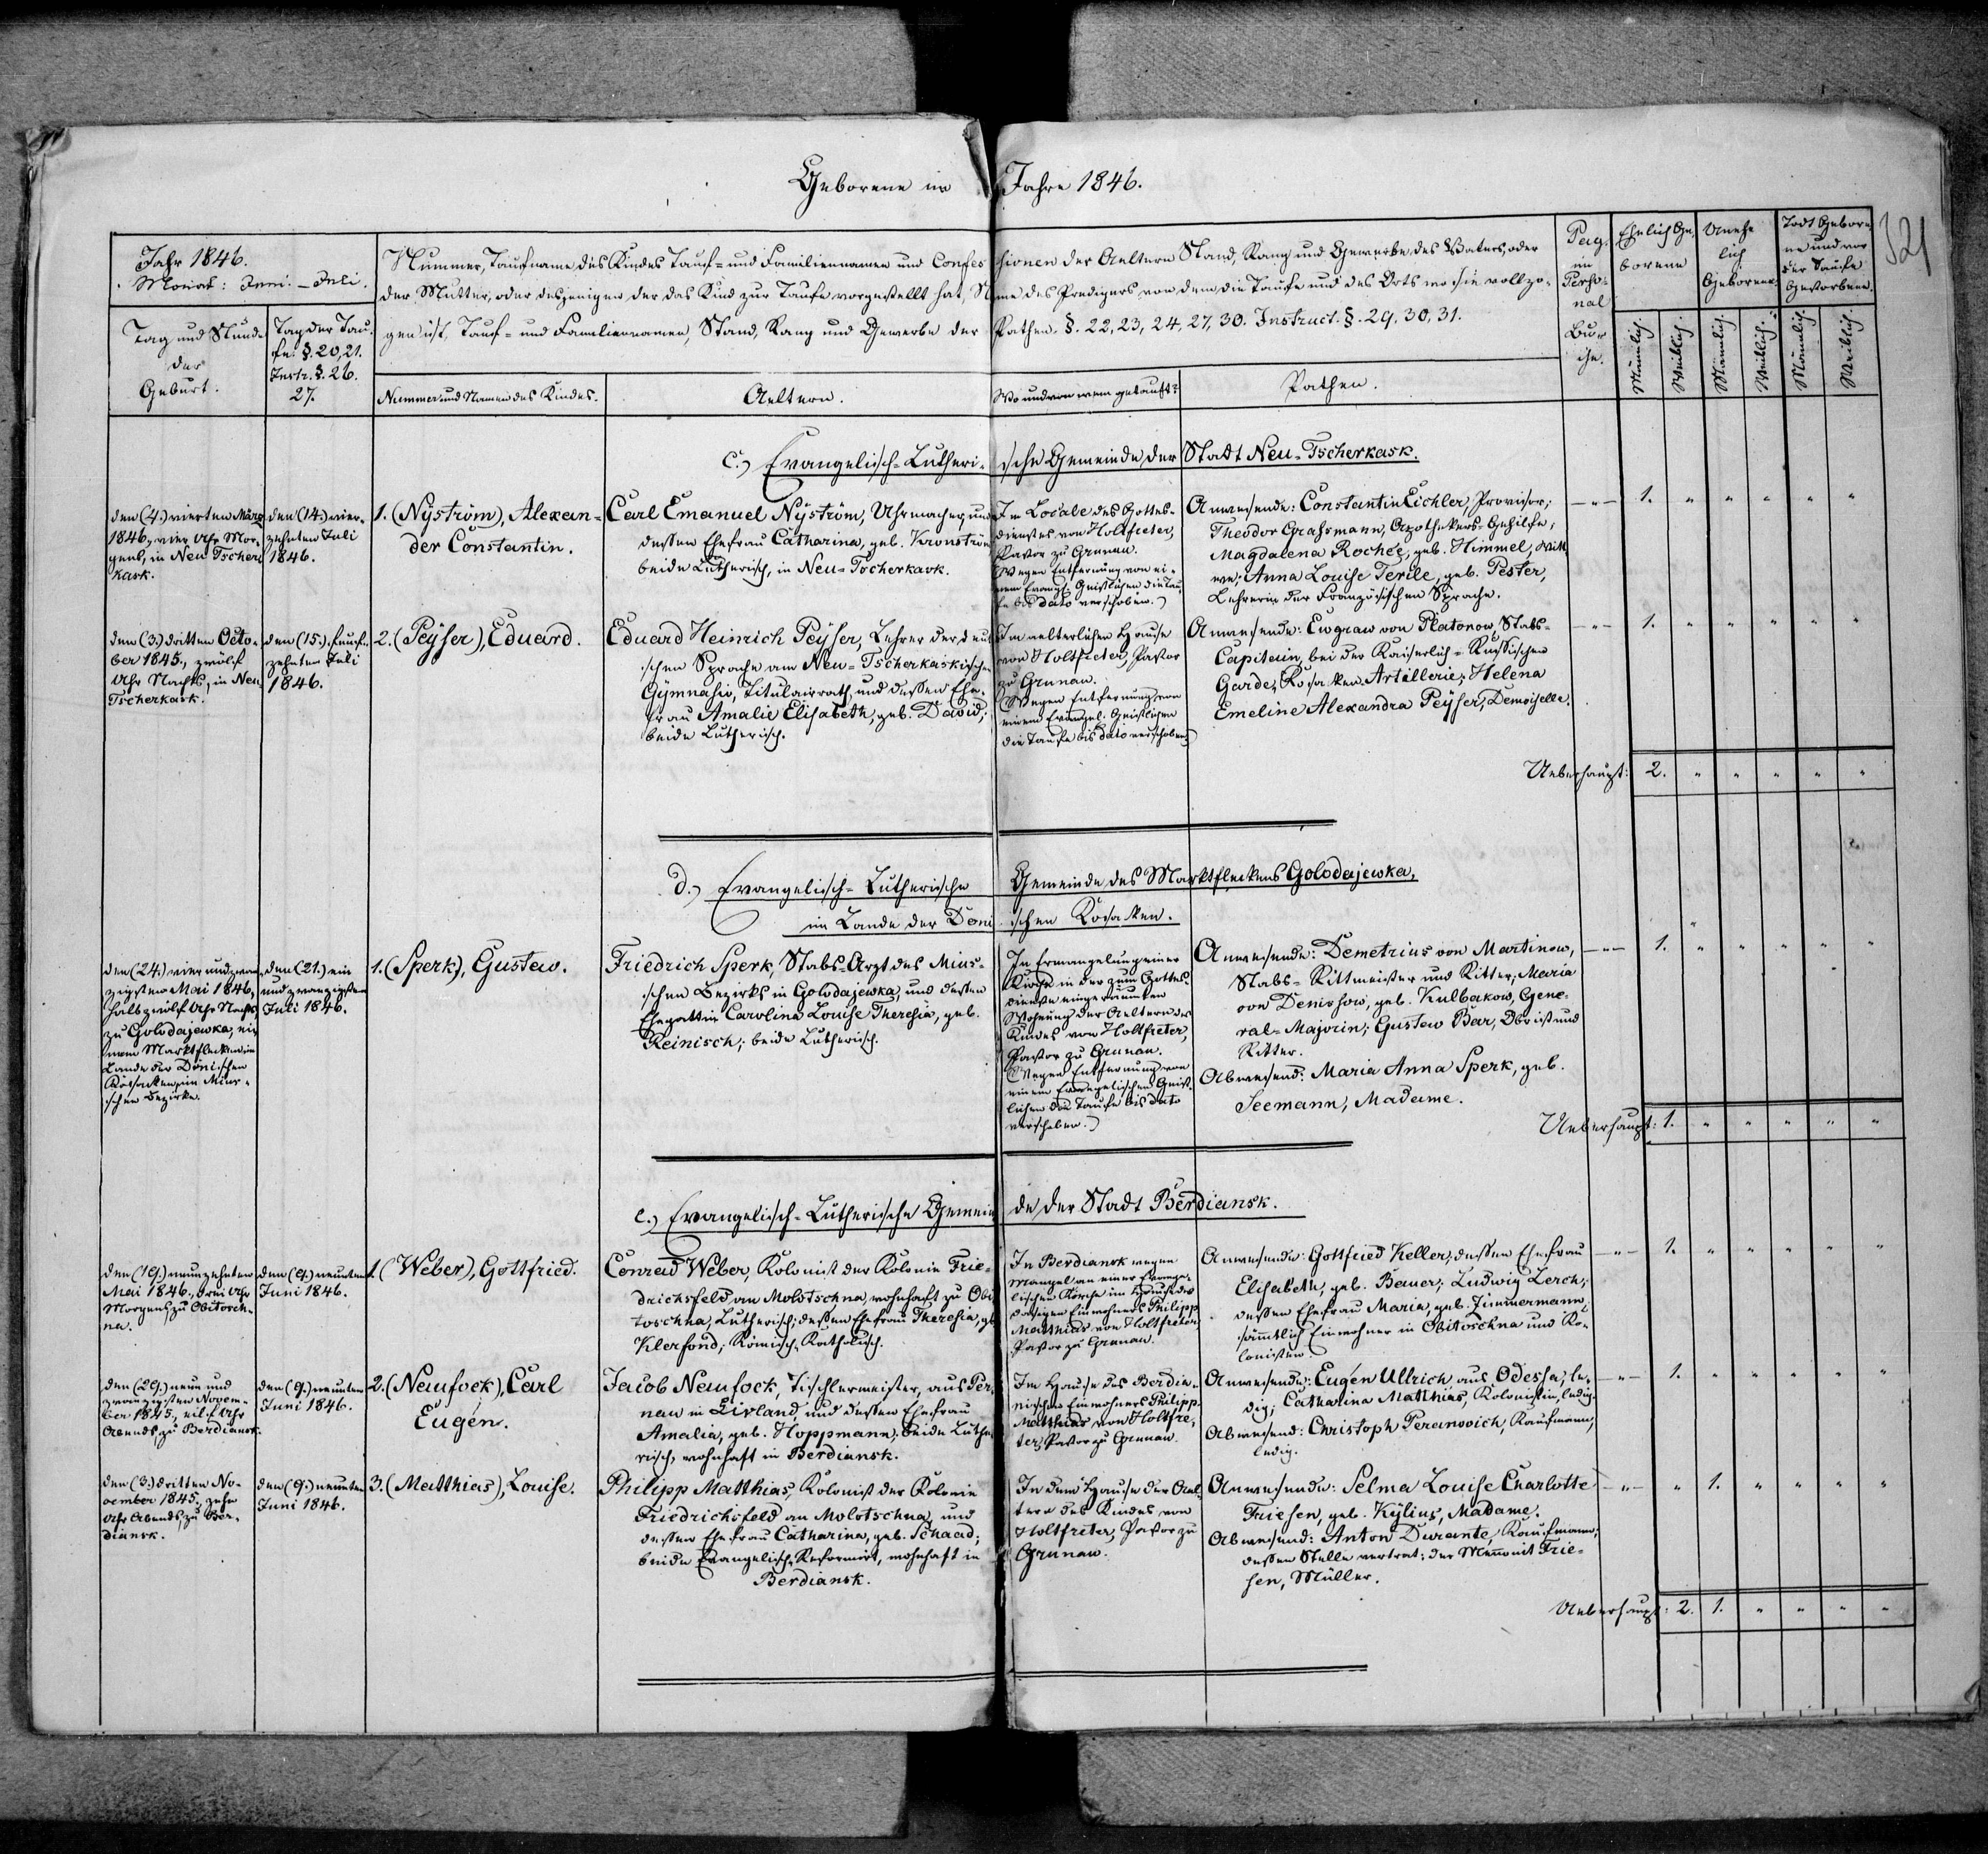 Geborene im Jahre 1846.
321
Jahr 1846.
Monat: Juni. - Juli.
Tag und Stunde
der
Geburt.
Tag der Tau-
fe. §. 20, 21.
Instr. §. 26.
27.
Nummer, Taufname des Kindes Tauf- und Familiennamen und Confessionen der Aeltern Stand, Rang und Gewerbe des Vaters, oder
der Mutter, oder desjenigen der das Kind zur Taufe vorgestellt hat, Name des Predigers von dem die Taufe und des Orts wo sie vollzo-
gen ist, Tauf- und Familiennamen, Stand, Rang und Gewerbe der Pathen. §. 22, 23, 24, 27, 30. Instruct. §. 29. 30, 31.
Nummer und Namen des Kindes.
Aeltern.
Wo und von wem getauft?
Pathen.
Pag.
im
Perso-
nal
Bu-
che.
Ehelich Ge-
borene
Unehe
lich
Geborene
Todt Gebore-
ne und vor
der Taufe
Gestorbene.
Männlich.
Weiblich.
Männlich.
Weiblich.
Männlich.
Weiblich.
c.) Evangelisch-Lutherische Gemeinde der Stadt Neu-Tscherkask.
den (4.) vierten März
1846., vier Uhr Mor-
gens, in Neu Tscher-
kask.
den (14.) vier-
zehnten Juli
1846.
1. (Nyström), Alexan-
der Constantin.
Carl Emanuel Nyström, Uhrmacher, und
dessen Ehefrau Catharina, geb. Kronström
beide Lutherisch, in Neu-Tscherkask.
Im Locale des Gottes-
dienstes von Holtfreter,
Pastor zu Grunau.
(Wegen Entfernung von ei-
nem Evangl. Geistlichen die Tau-
fe bis dato verschoben.)
Anwesende: Constantin Eichler, Provisor;
Theodor Grassmann, Apothekers-Gehilfe;
Magdalena Rochée, geb. Himmel, Witt
we; Anna Louise Terile, geb. Pester,
Lehrerin der Französischen Sprache.
- " - 1. " " " " "
den (3.) dritten Octo-
ber 1845., zwölf
Uhr Nachts, in Neu
Tscherkask.
den (15.) funf-
zehnten Juli
1846.
2. (Peyser), Eduard.
Eduard Heinrich Peyser, Lehrer der deut
schen Sprache am Neu-Tscherkaskischen
Gymnasio, Titulairrath, und dessen Ehe-
frau Amalie Elisabeth, geb. David;
beide Lutherisch.
Im aelterlichen Hause
von Holtfreter, Pastor
zu Grunau.
(Wegen Entfernung von
einem Evangel. Geistlichen
die Taufe bis dato verschoben.)
Anwesende: Ewgraw von Platonow, Stabs-
Capitain, bei der Kaiserlich-Russischen
Garde, Kosaken Artillerie; Helena
Emeline Alexandra Peyser, Demoiselle.
- " - 1. " " " " "
Ueberhaupt: 2. " " " " "
d.) Evangelisch-Lutherische Gemeinde des Marktfleckens Golodajewka,
im Lande der Donischen Kosacken.
den (24.) vier und zwan-
zigsten Mai 1846,
halb zwölf Uhr Nachts,
zu Golodajewka, ei-
nem Marktflecken im
Lande der Donischen
Kosacken, im Mius-
schen Bezirke.
den (21.) ein
und zwanzigsten
Juli 1846.
1. (Sperk), Gustav.
Friedrich Sperk, Stabs-Arzt des Mius-
schen Bezirks in Golodajewka, und dessen
Ehegattin Carolina Louise Theresia, geb.
Reinisch; beide Lutherisch.
In Ermangelung einer
Kirche in der zum Gottes-
dienste eingeräumten
Wohnung der Aeltern des
Kindes von Holtfreter,
Pastor zu Grunau.
(Wegen Entfernung von
einem Evangelischen Geist-
lichen die Taufe bis dato
verschoben.)
Anwesende: Demetrius von Martinow,
Stabs-Rittmeister und Ritter; Maria
von Denissow, geb. Kulbakow, Gene-
ral-Majorin; Gustav Bar, Obrist und
Ritter.
Abwesend: Maria Anna Sperk, geb.
Seemann, Madame.
- " - 1. " " " " "
Ueberhaupt: 1. " " " " "
e.) Evangelisch-Lutherische Gemeinde der Stadt Berdiansk.
den (19.) neunzehnten
Mai 1846., drei Uhr
Morgens, zu Obitosch-
na.
den (9.) neunten
Juni 1846.
1. (Weber), Gottfried.
Conrad Weber, Kolonist der Kolonie Frie-
drichsfeld, an Molotschna, wohnhaft zu Obi
toschna, Lutherisch; dessen Ehefrau Theresia, geb
Klerfond, Römisch-Katholisch.
In Berdiansk wegen
Mangel an einer Evange-
lischen Kirche im Hause des
dasigen Einwohners Philipp
Matthias von Holtfreter,
Pastor zu Grunau.
Anwesende: Gottfried Keller, dessen Ehefrau
Elisabeth, geb. Bauer; Ludwig Lerch;
dessen Ehefrau Maria, geb. Zimmermann,
sämmtlich Einwohner in Obitoschna und Ko-
lonisten.
- " - 1. " " " " "
den (29.) neun und
zwanzigsten Novem-
ber 1845., eilf Uhr
Abends, zu Berdiansk.
den (9.) neunten
Juni 1846.
2. (Naufock), Carl
Eugén.
Jacob Naufock, Tischlermeister, aus Per-
nau in Livland, und dessen Ehefrau
Amalia, geb. Hoppmann, beide Luthe-
risch, wohnhaft in Berdiansk.
Im Hause des Berdian-
nischen Einwohners Philipp
Matthias von Holtfre-
ter, Pastor zu Grunau.
Anwesende: Eugén Ullrich aus Odessa, le-
dig; Catharina Matthias, Kolonistin, ledig.
Abwesend: Christoph Peranovich, Kaufmann,
ledig.
- " - 1. " " " " "
den (3.) dritten No-
vember 1845., zehn
Uhr Abends, zu Ber-
diansk.
den (9.) neunten
Juni 1846.
3. (Matthias), Louise.
Philipp Matthias, Kolonist der Kolonie
Friedrichsfeld an Molotschna, und
dessen Ehefrau Catharina, geb. Schaad;
beide Evangelisch-Reformirt, wohnhaft in
Berdiansk.
In dem Hause der Ael-
tern des Kindes von
Holtfreter, Pastor zu
Grunau.
Anwesende: Selma Louise Charlotte
Friesen, geb. Kylius, Madame.
Abwesend: Anton Durante, Kaufmann;
dessen Stelle vertrat: der Menonit Frie-
sen, Müller.
- " - " 1. " " " "
Ueberhaupt: 2. 1. " " " "